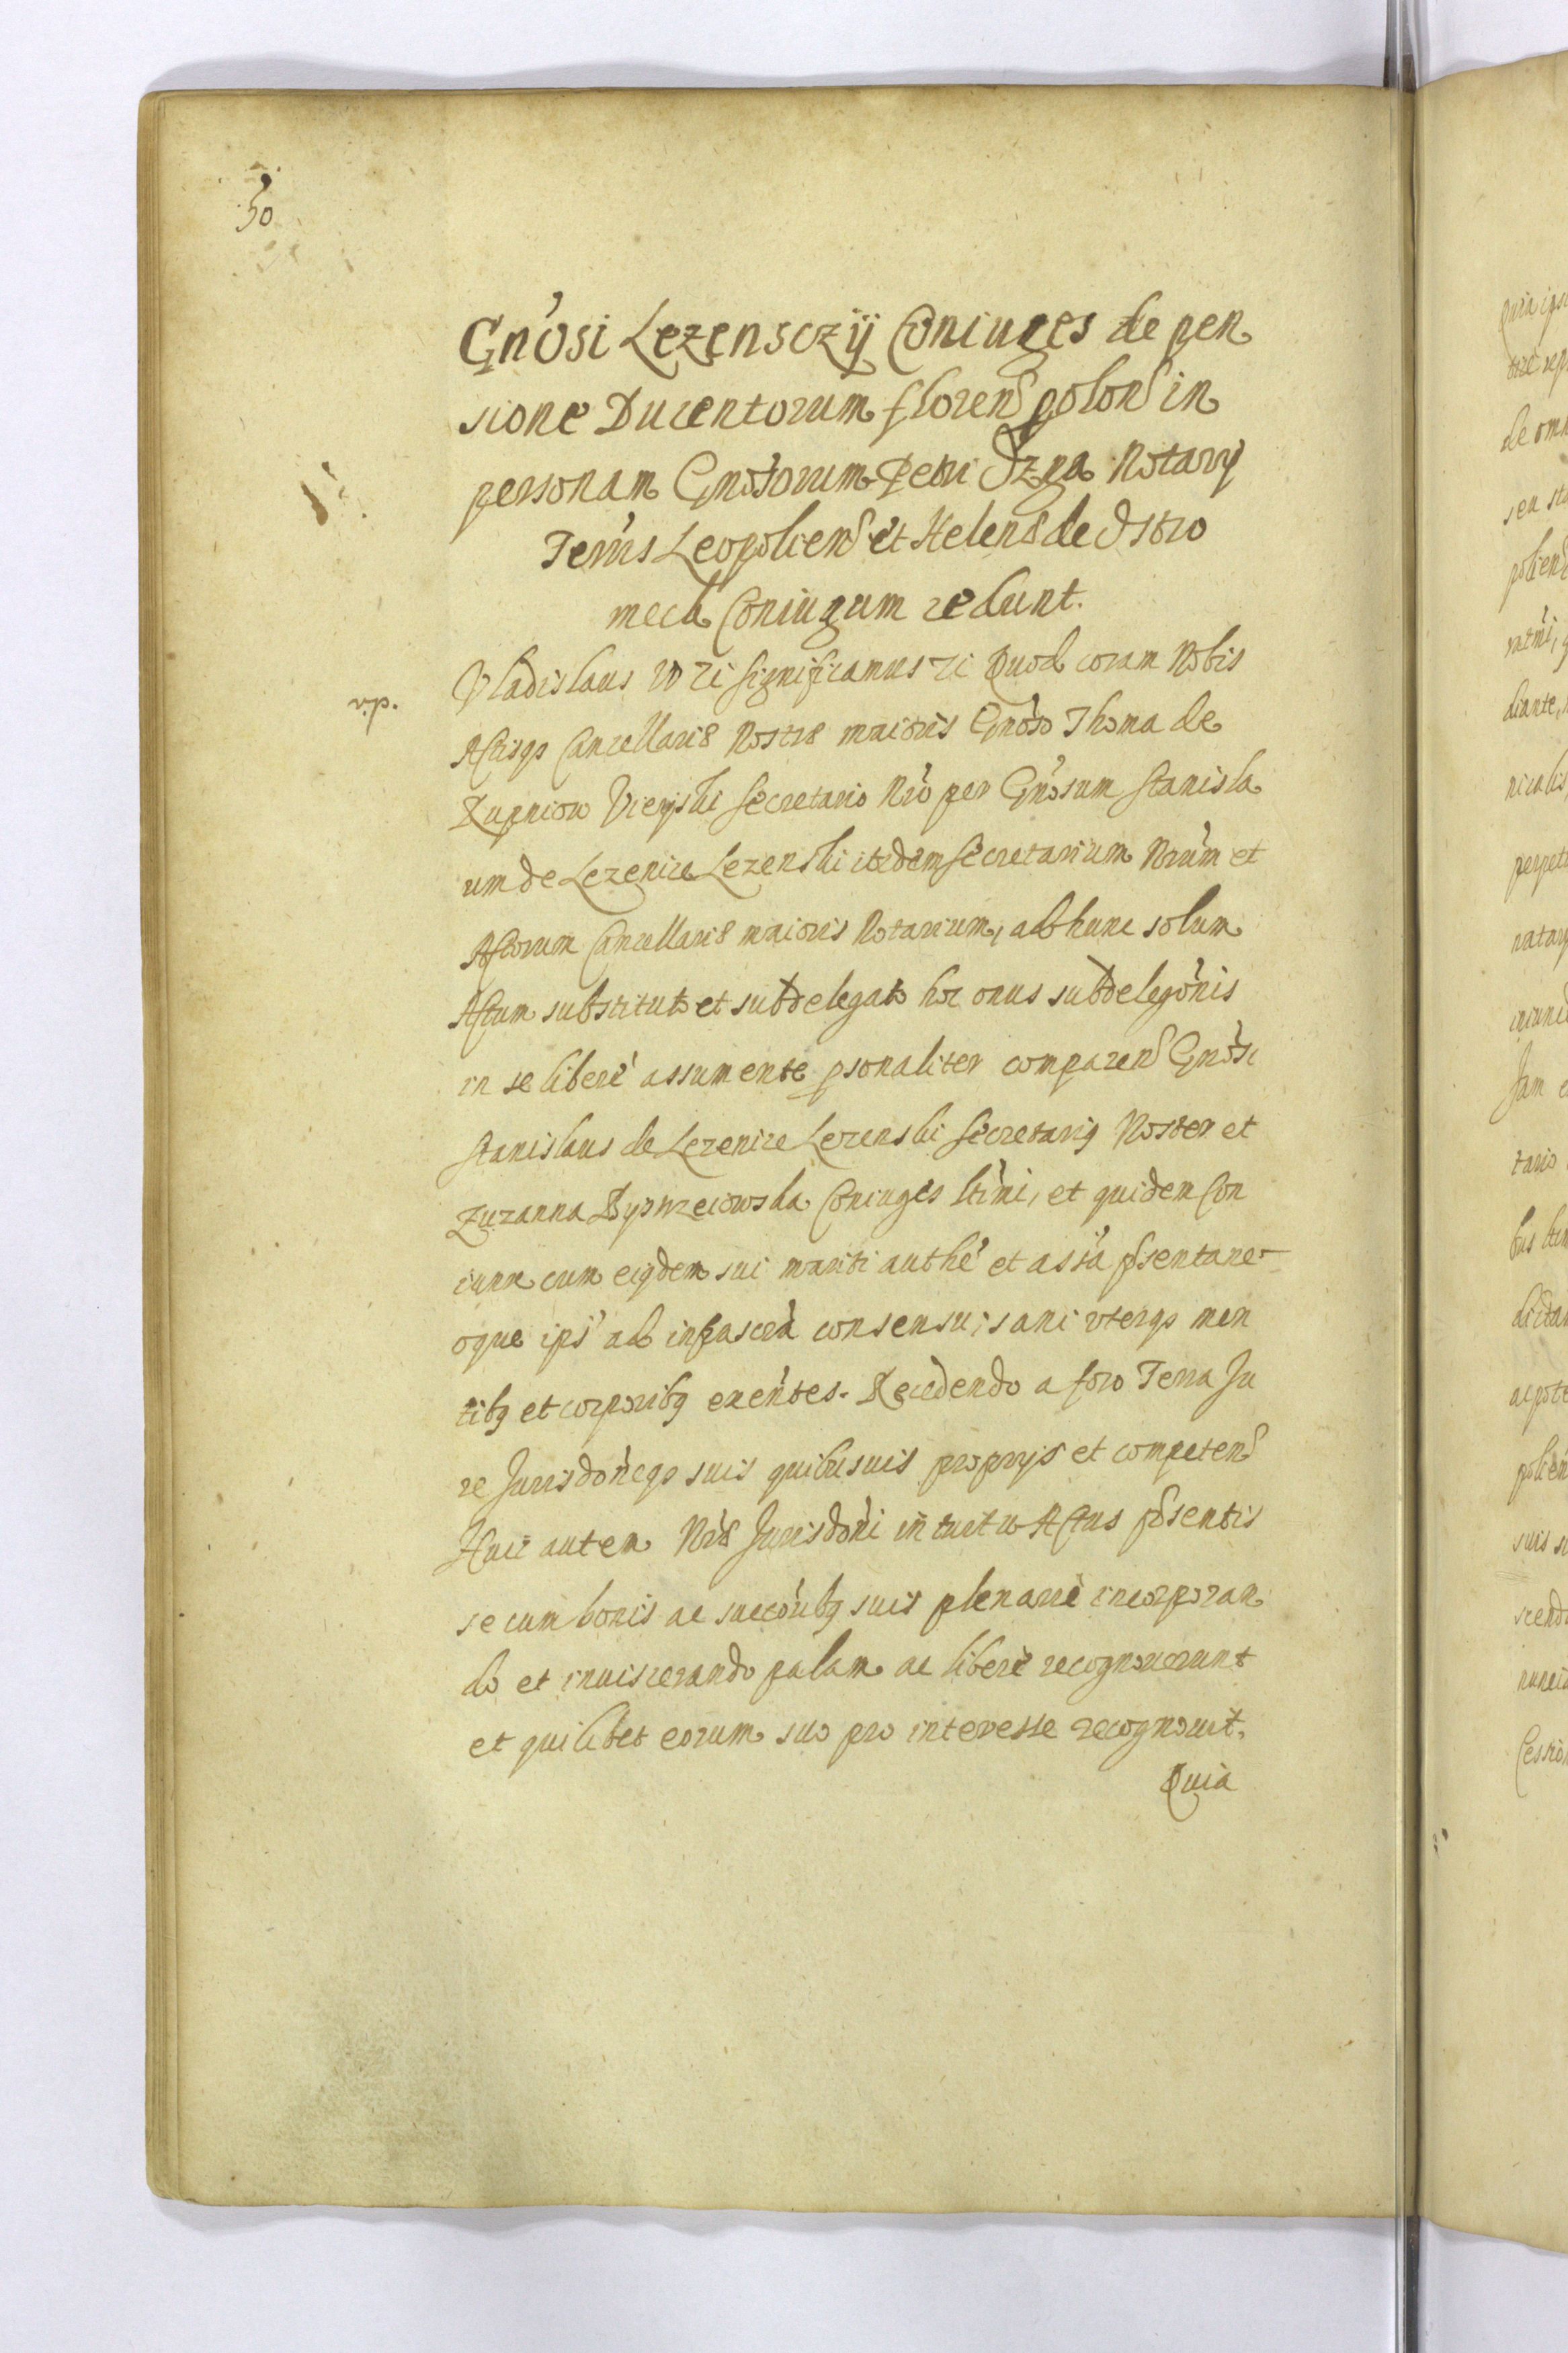 50
Gn'osi Lezensczÿ Coniuges de pen
sione Ducentorum floren polon in
personam Gnosorum Petri Ozga Notary
Terr'is Leopolien et Helenæ de Ostro
mecz Coniugum cedunt.
Vladislaus IV &c significamus &c Quod coram Nobis
Actisqꝫ Cancellariæ Nostræ maioris Gnoso Thoma de
Vieyski Secretario Nro per Gnosum Stanisla
um de Lezenice Lezenski itidem Secretarium Nrum et
Actorum Cancellariæ maioris Notarium, ad hunc solum
Actum substituto et subdelegato hoc onus subdelegonis
in se liberè assumente psonaliter comparen Gnosi
Stanislaus de Lezenice Lezenski Secretarig Noster et
Zuzanna Coniuges ltimi, et quidem Con
iunx cum eiqdem sui mariti authe et assa psentane
oque ips ad infrascra consensu, sani vterqꝫ men
tibg et corporibg existentes. Recedendo a foro Terra Ju
re Jurisdoneqꝫ suis quibusuis proprijs et competen
Huic autem Nræ Jurisdoni intuitu Actus psentis
se cum bonis ac succoribg suis plenarie incorporan
do et inuiscerando palam ac liberè recognouerunt
et quilibet eorum suo pro interesse recognouit.
Quia